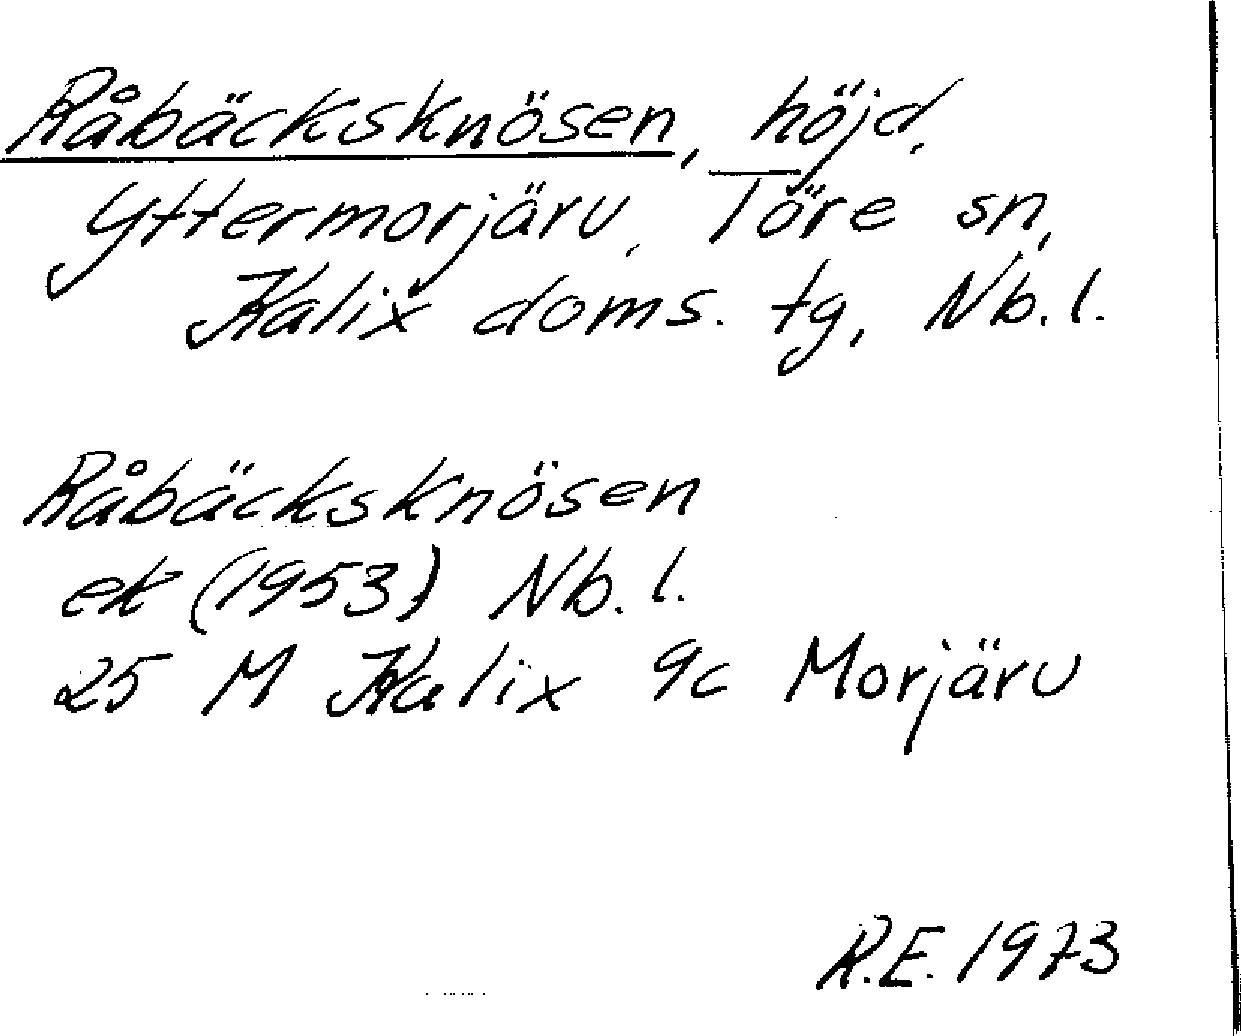 Råbäcksknösen, höjd,
Yttermorjärv, Töre sn,
Kalix doms. tg, Nb. l.
Råbäcksknösen
ek (1953) Nb. l.
25 M Kalix 9c Morjärv
R.E. 1973